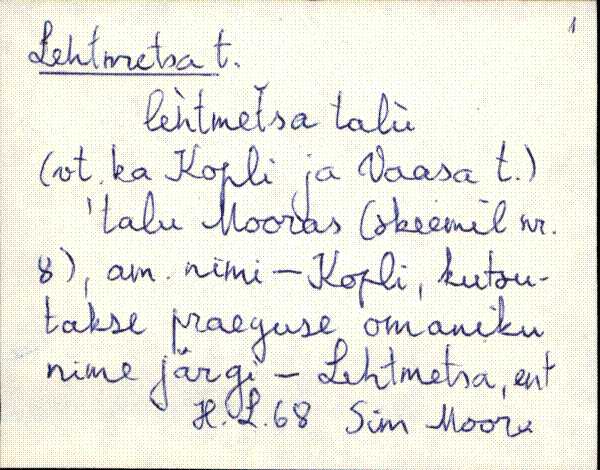 1
Lehtmetsa t.
lèhtmet̆sa talù
(vt. ka Kopli ja Vaasa t.)
'talu Mooras (skeemil nr.
8), am. nimi – Kopli, kutsu-
takse praeguse omaniku
nime järgi – Lehtmetsa, ent
H. L. 68 Sim Moora